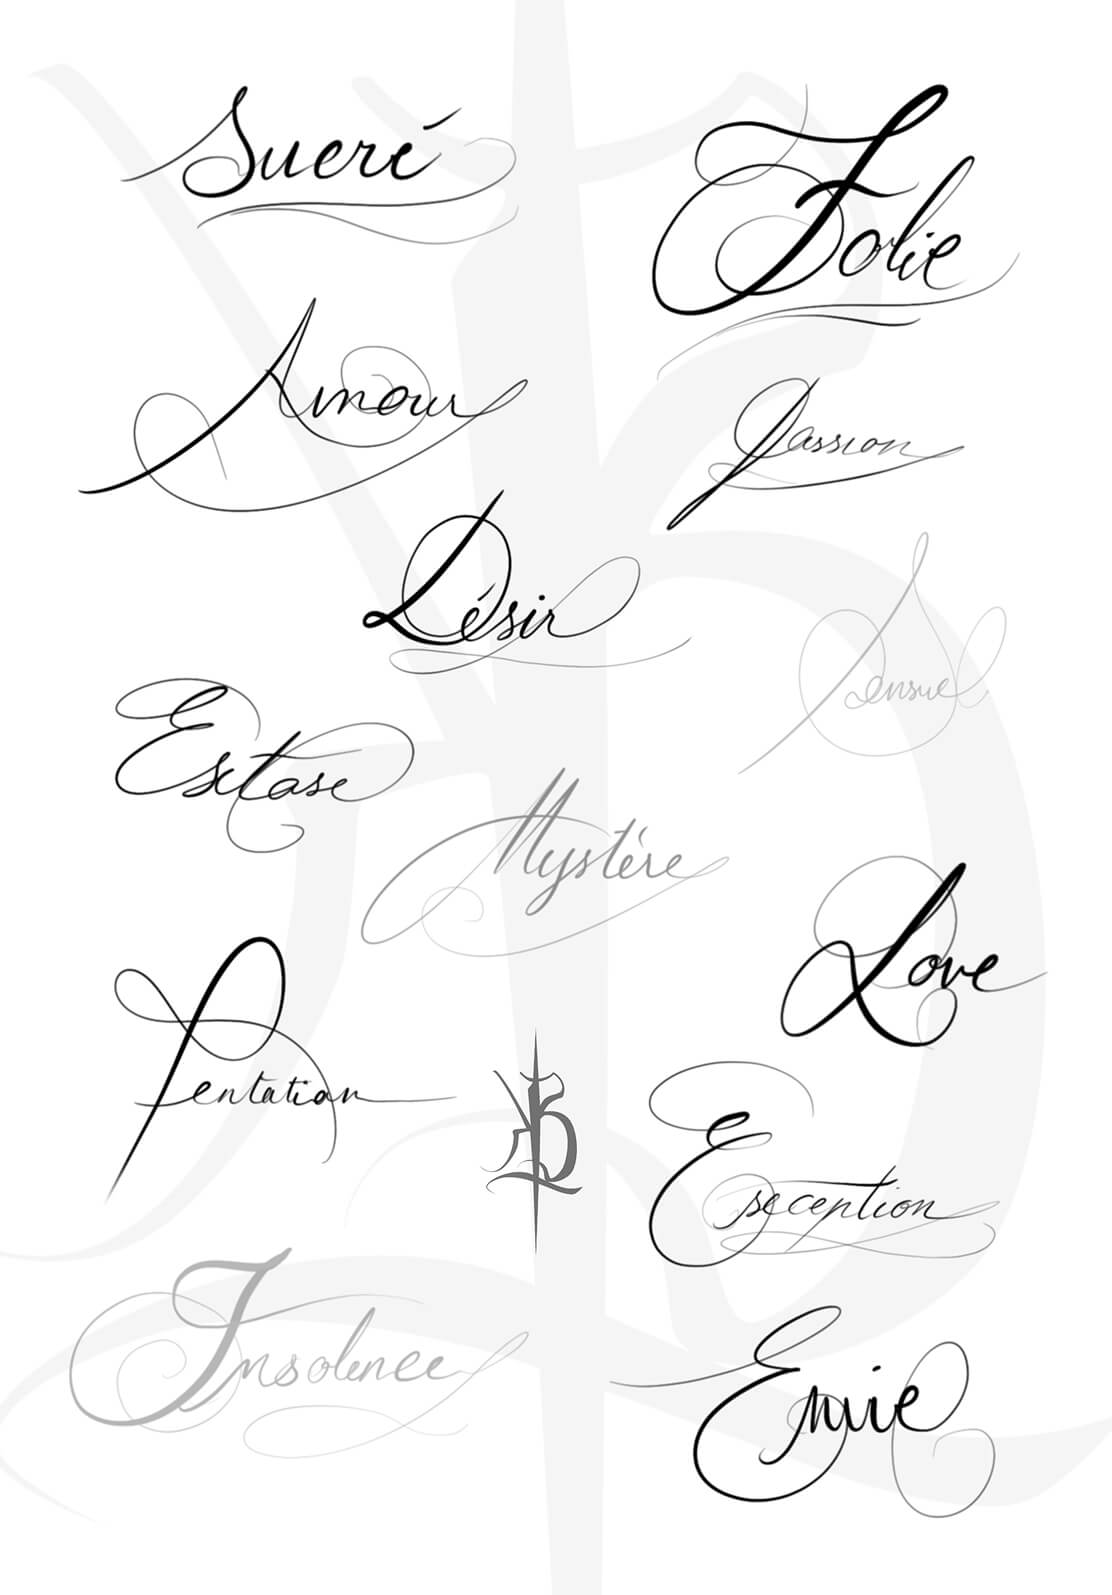 Sucré
Folie
Amour
Passion
Désir
Sensuel
Extase
Mystére
Love
Tentation
Exception
Insolence
Envie